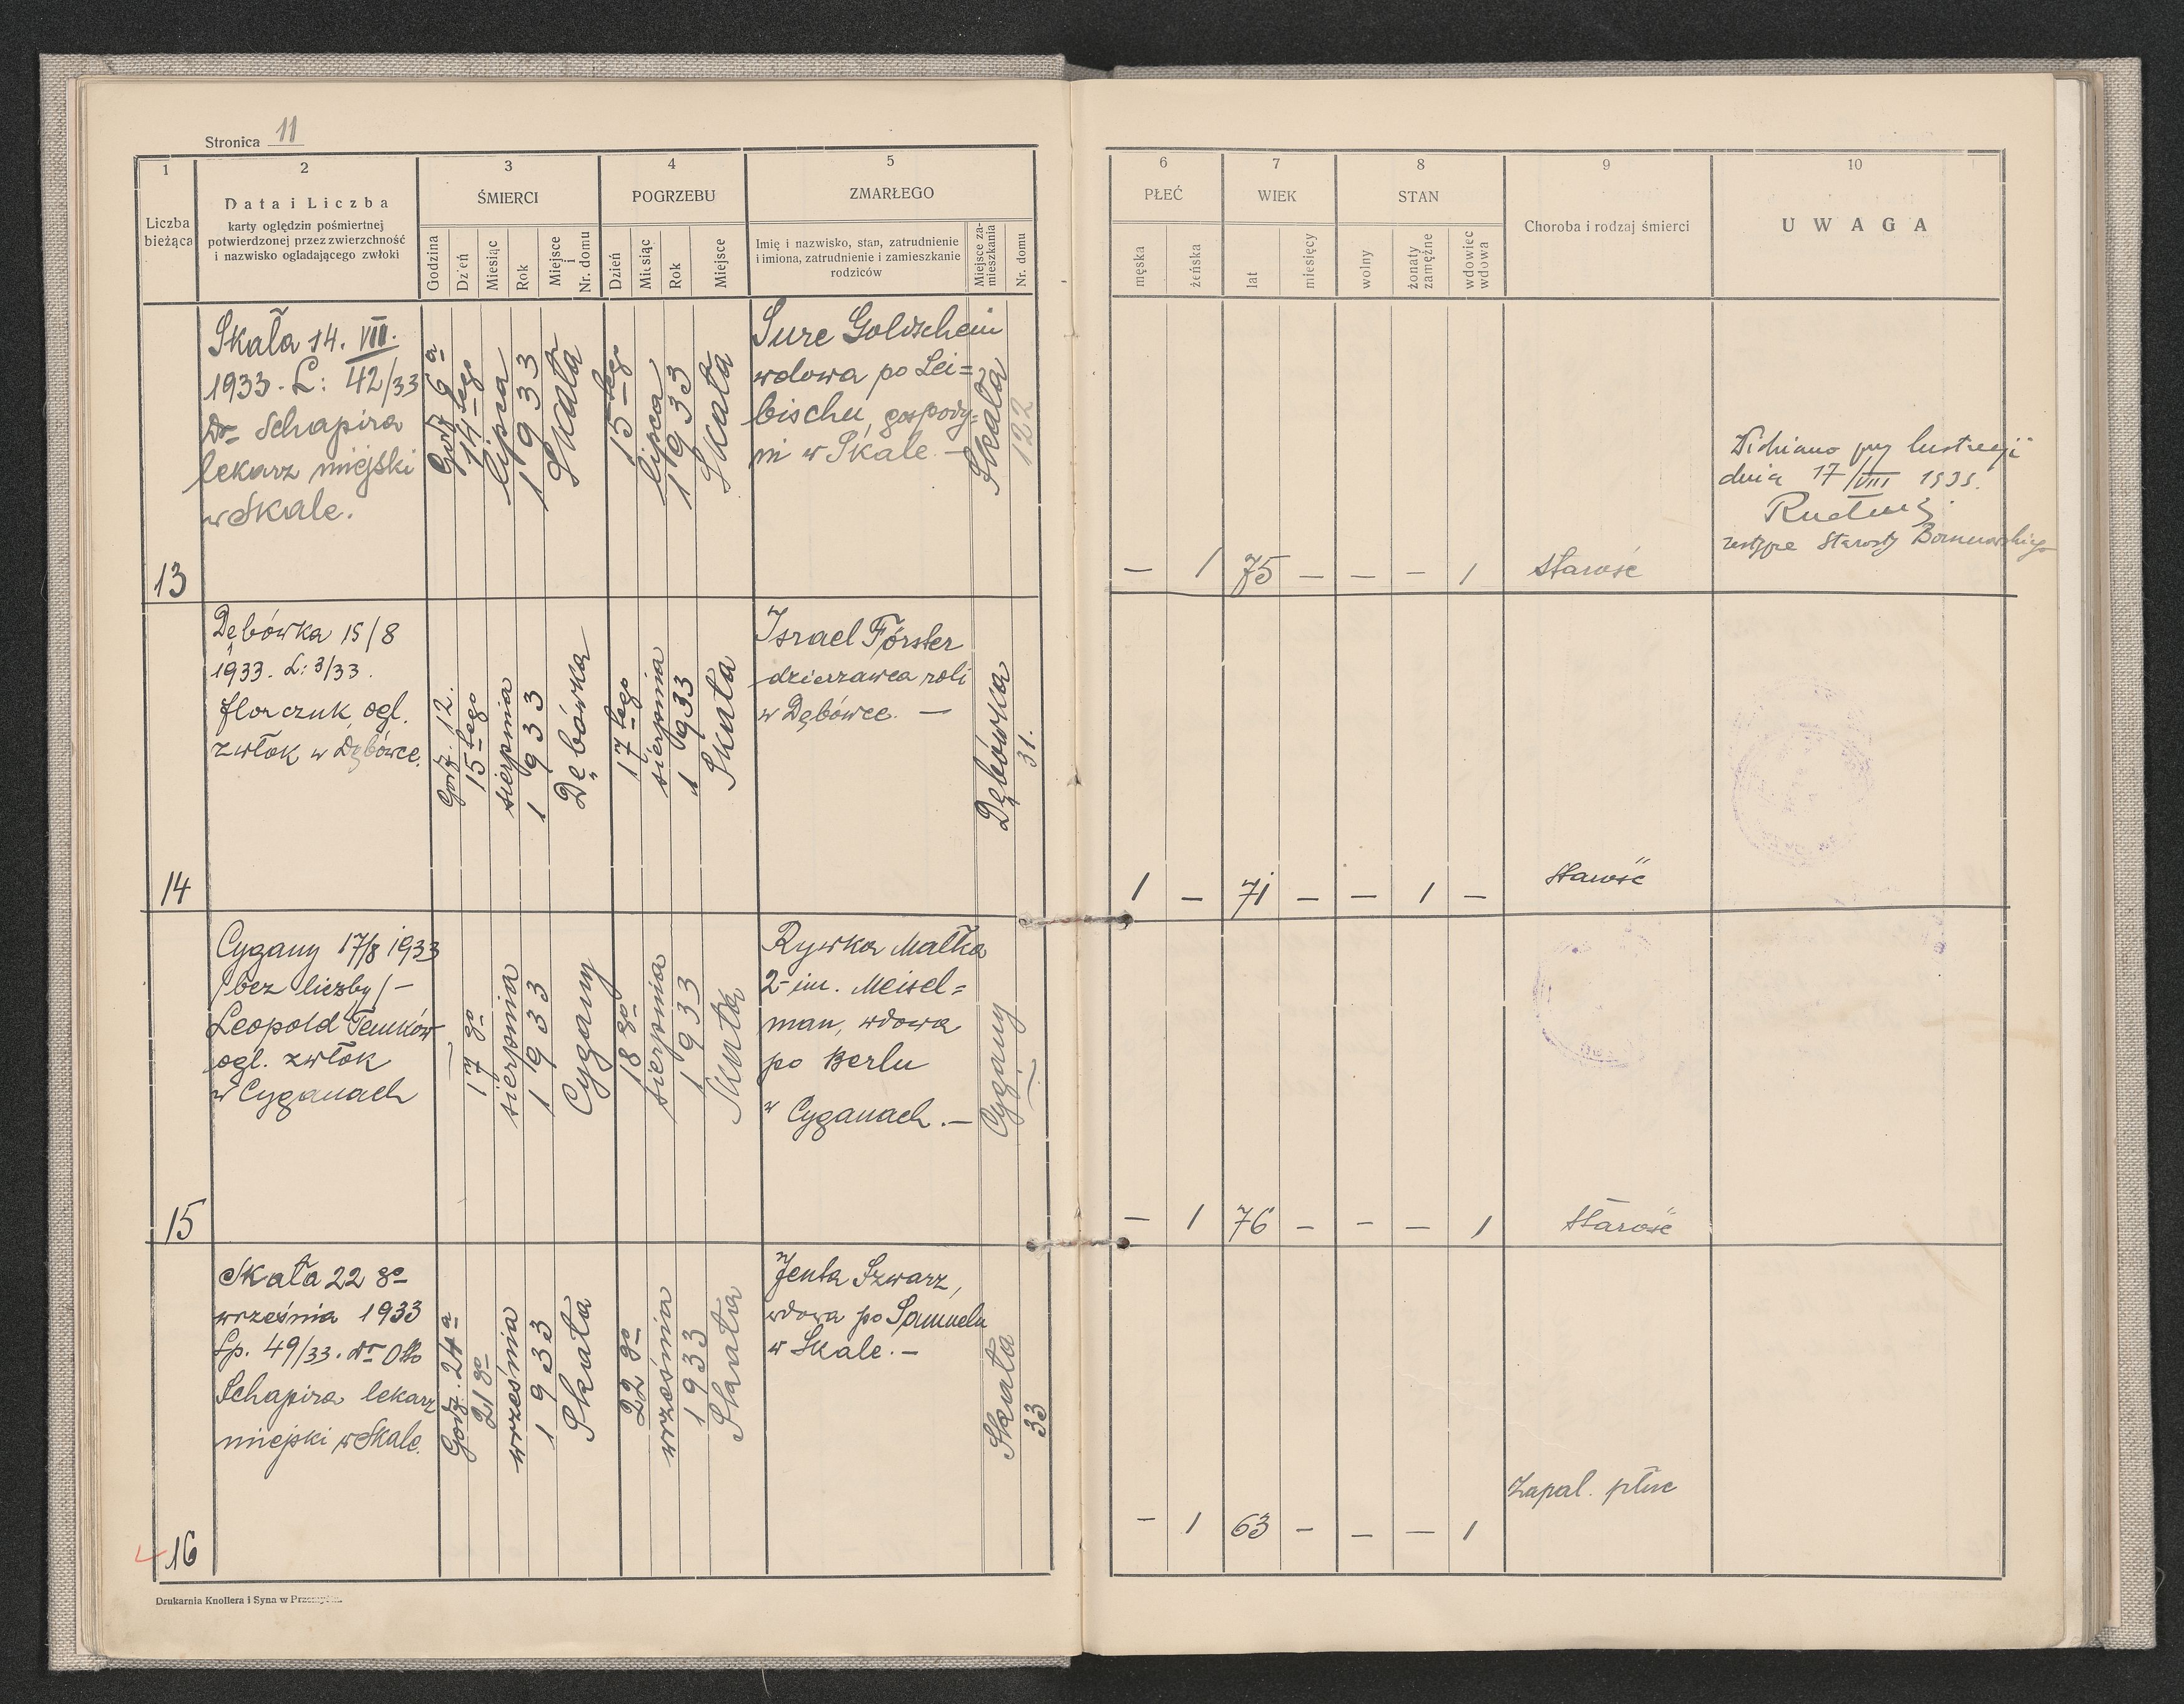 Stronica 11
1
2
3
4
5
Liczba
bieżąca
Data i Liczba
karty oględzin pośmiertnej
potwierdzonej przez zwierzchność
i nazwisko ogladającego zwłoki
ŚMIERCI
Godzina
Dzień
Miesiąc
Rok
Miejsce
i
Nr. domu
POGRZEBU
Dzień
Miesiąc
Rok
Miejsce
ZMARŁEGO
Imię i nazwisko, stan, zatrudnienie
i imiona, zatrudnienie i zamieszkanie
rodziców
Miejsce za-
mieszkania
Nr. domu
6
7
8
9
10
PŁEĆ
męska
żeńska
WIEK
lat
miesięcy
STAN
wolny
żonaty
zamężne
wdowiec
wdowa
Choroba i rodzaj śmierci
UWAGA
13
Skała 14. VIII.
1933. L: 42/33
Dr Schapira
lekarz miejski
w Skale.
Godz 6 a
14 tego
lipca
1933
Skała
15 tego
lipca
1933
Skała
Sure Goldschein
wdowa po Lei=
bischu, gospody=
ni w Skale. —
Skała
122
— 1 75 — — — 1
Starość
dnia 17/VIII 1935.
Starosty
14
Dębówka 15/8
1933. L: 3/33.
Florczuk, ogl.
zwłok w Dębówce.
Godz. 12.
15 tego
sierpnia
1933
Dębówka
17 tego
sierpnia
1933
Skała
Israel Förster
dzierzawca roli
w Dębówce. —
Dębówka
31.
1 — 71 — — 1 —
Starość
15
Cygany 17/8 1933
/bez liczby/ —
Leopold Temków
ogl. zwłok
w Cyganach
—
17 go
sierpnia
1933
Cygany
18 go
sierpnia
1933
Skała
Rywka Małka
2-im. Meisel=
man, wdowa
po Berlu
w Cyganach. —
Cygany
—
— 1 76 — — — 1
Starość
16
Skała 22 go
września 1933
Lp. 49/33. dr Otto
Schapira lekarz
miejski w Skale.
Godz. 24 a
21 go
września
1933
Skała
22 go
września
1933
Skała
Jenta Szwarz,
wdowa po Samuelu
w Skale. —
Skała
33
— 1 63 — — — 1
Zapal. płuc
Drukarnia Knollera i Syna w Przemyślu.